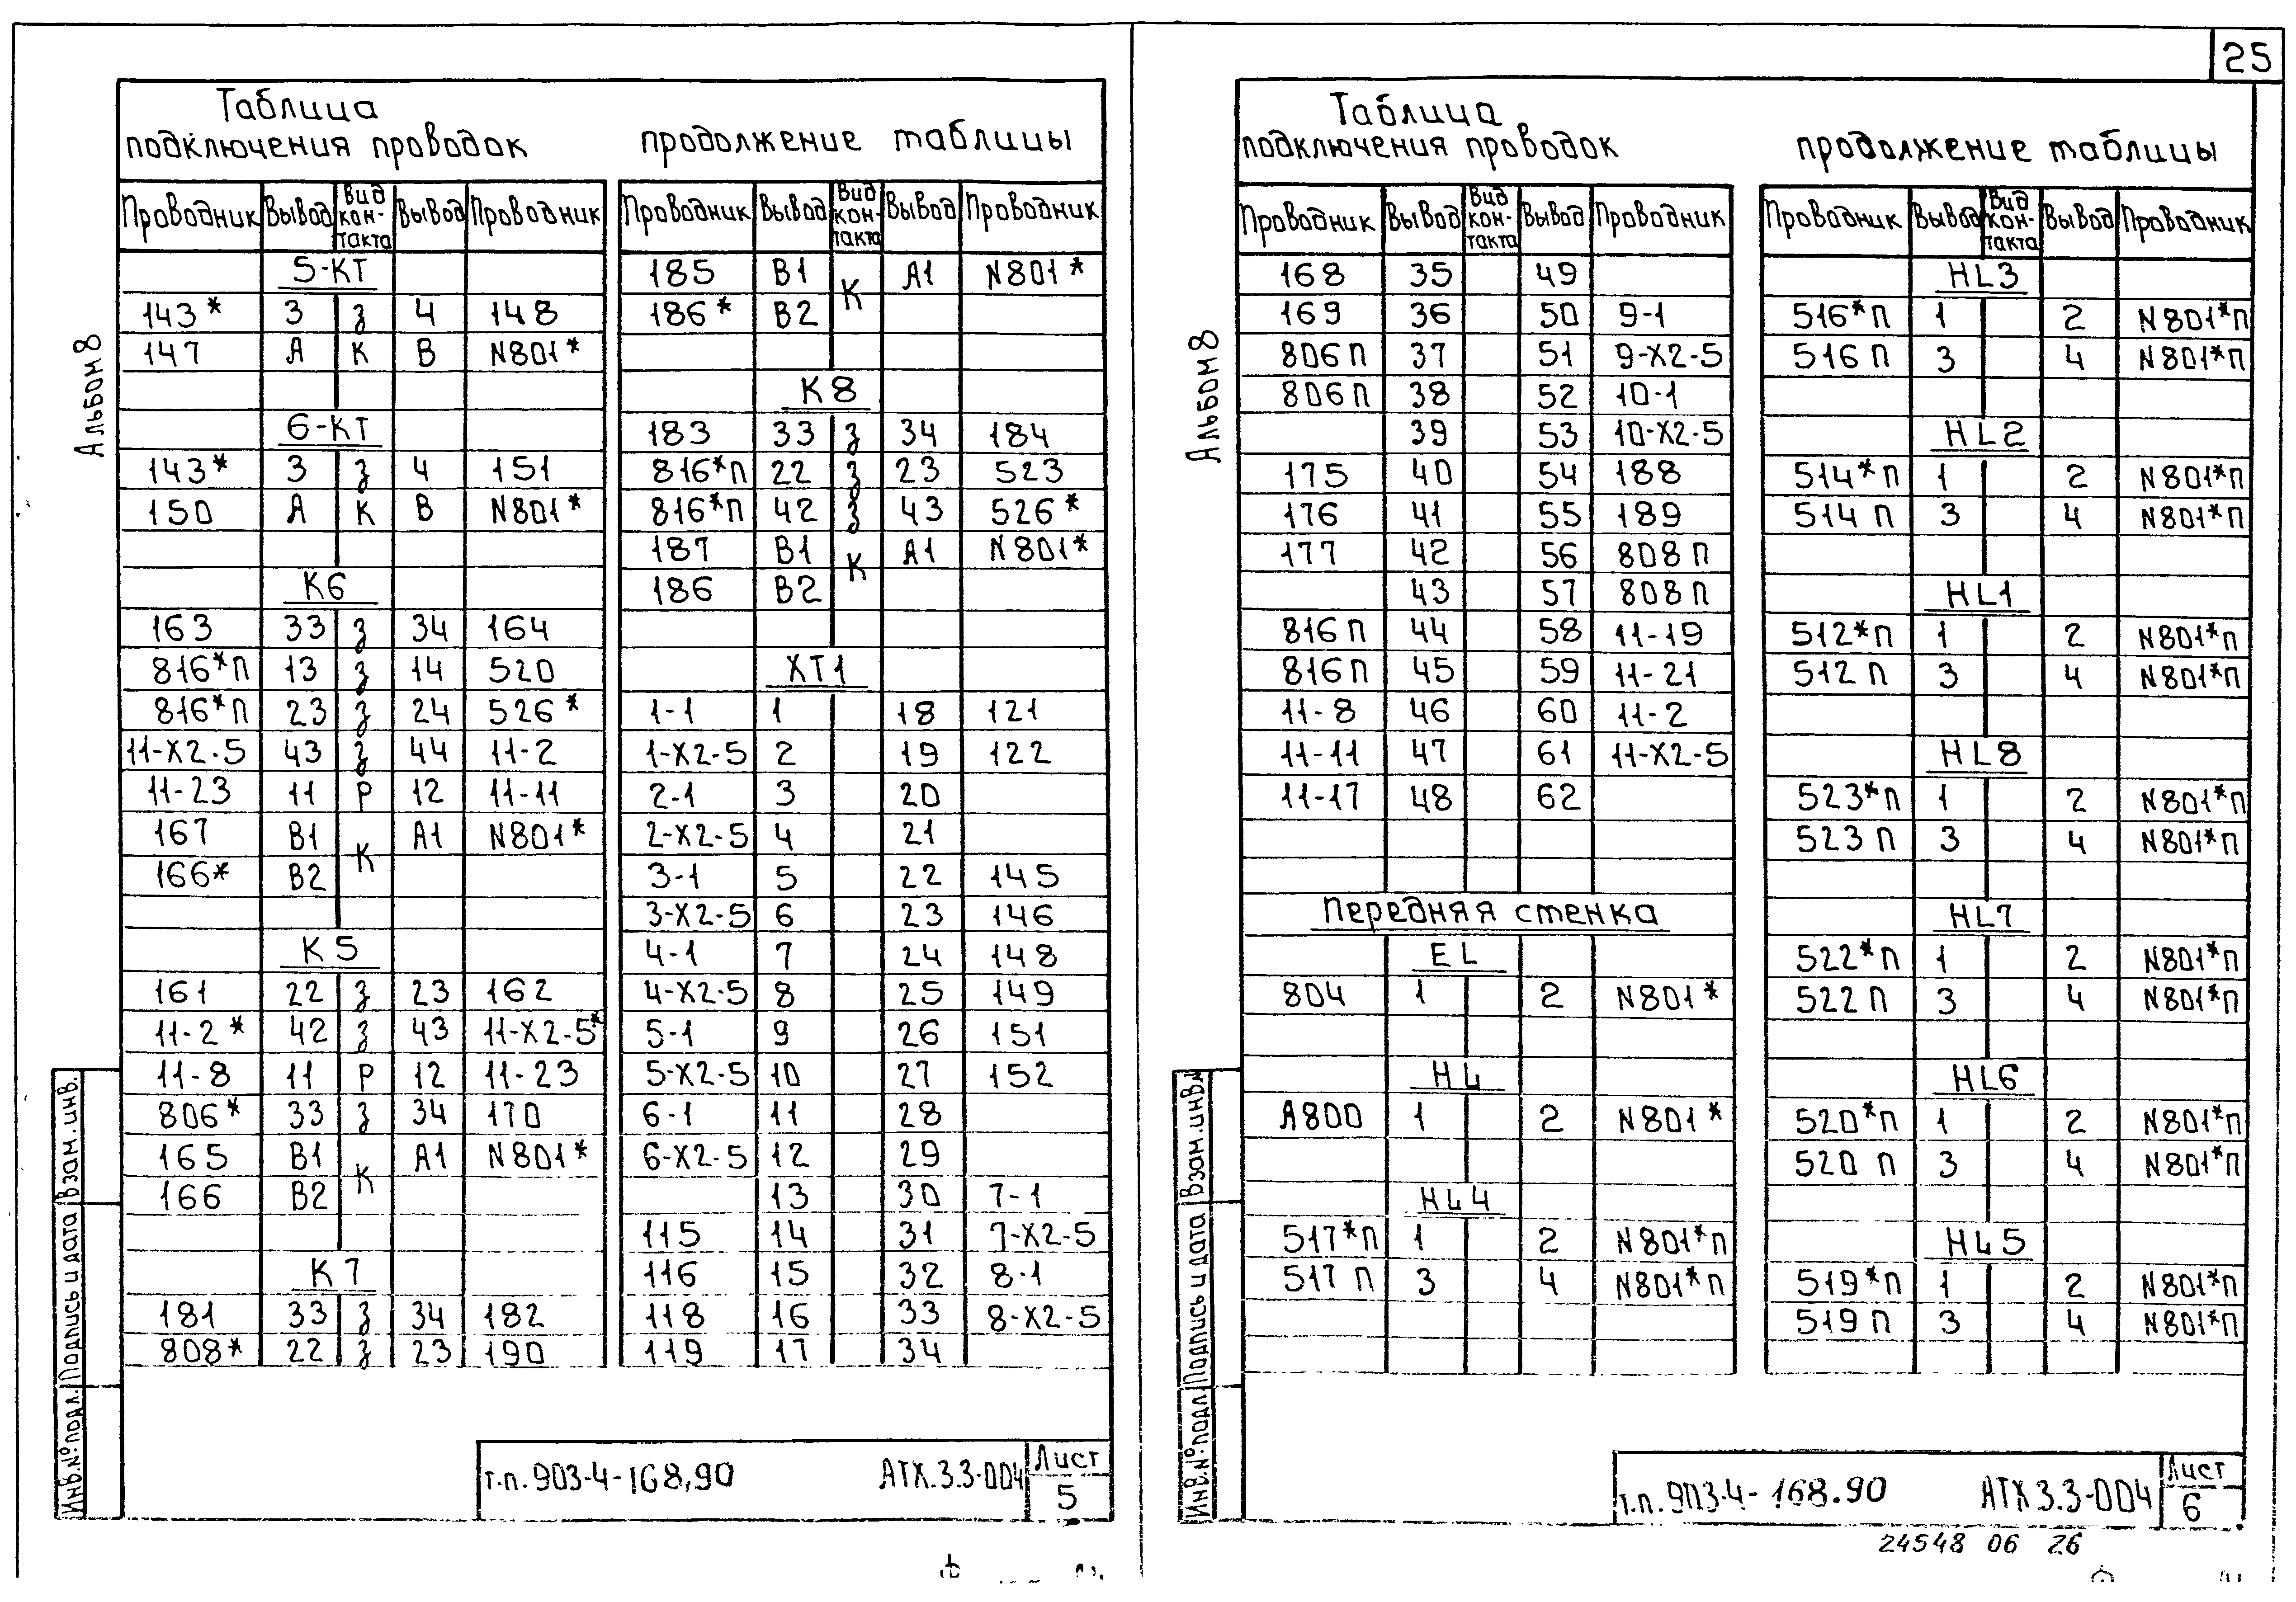 25
Альбом 8
Таблица
подключения проводок
Проводник Вывод Вид кон-такта Вывод Проводник
5-КТ
143* 3 з 4 148
147 А К В N801*
6-КТ
143* 3 з 4 151
150 А К В N801*
К6
163 33 з 34 164
816*П 13 з 14 520
816*П 23 з 24 526*
11-Х2-5 43 з 44 11-2
11-23 11 Р 12 11-11
167 В1 К А1 N801*
166* В2
К5
161 22 з 23 162
11-2* 42 з 43 11-Х2-5*
11-8 11 Р 12 11-23
806* 33 з 34 170
165 В1 К А1 N801*
166 В2
К7
181 33 з 34 182
808* 22 з 23 190
продолжение таблицы
Проводник Вывод Вид кон-такта Вывод Проводник
185 В1 К А1 N801*
186* В2
К8
183 33 з 34 184
816*П 22 з 23 523
816*П 42 з 43 526*
187 В1 К А1 N801*
186 В2
ХТ1
1-1 1 18 121
1-Х2-5 2 19 122
2-1 3 20
2-Х2-5 4 21
3-1 5 22 145
3-Х2-5 6 23 146
4-1 7 24 148
4-Х2-5 8 25 149
5-1 9 26 151
5-Х2-5 10 27 152
6-1 11 28
6-Х2-5 12 29
13 30 7-1
115 14 31 7-Х2-5
116 15 32 8-1
118 16 33 8-Х2-5
119 17 34
Инв.№подл. Подпись и дата Взам.инв.
т.п. 903-4-168.90 АТХ.3.3-004 Лист
5
Альбом 8
Таблица
подключения проводок
Проводник Вывод Вид кон-такта Вывод Проводник
168 35 49
169 36 50 9-1
806П 37 51 9-Х2-5
806П 38 52 10-1
39 53 10-Х2-5
175 40 54 188
176 41 55 189
177 42 56 808П
43 57 808П
816П 44 58 11-19
816П 45 59 11-21
11-8 46 60 11-2
11-11 47 61 11-Х2-5
11-17 48 62
Передняя стенка
EL
804 1 2 N801*
HL
А800 1 2 N801*
HL4
517*П 1 2 N801*П
517П 3 4 N801*П
продолжение таблицы
Проводник Вывод Вид кон-такта Вывод Проводник
HL3
516*П 1 2 N801*П
516П 3 4 N801*П
HL2
514*П 1 2 N801*П
514П 3 4 N801*П
HL1
512*П 1 2 N801*П
512П 3 4 N801*П
HL8
523*П 1 2 N801*П
523П 3 4 N801*П
HL7
522*П 1 2 N801*П
522П 3 4 N801*П
HL6
520*П 1 2 N801*П
520П 3 4 N801*П
HL5
519*П 1 2 N801*П
519П 3 4 N801*П
Инв.№подл. Подпись и дата Взам.инв.№
т.п. 903-4-168.90 АТХ3.3-004 Лист
6
24548 06 26